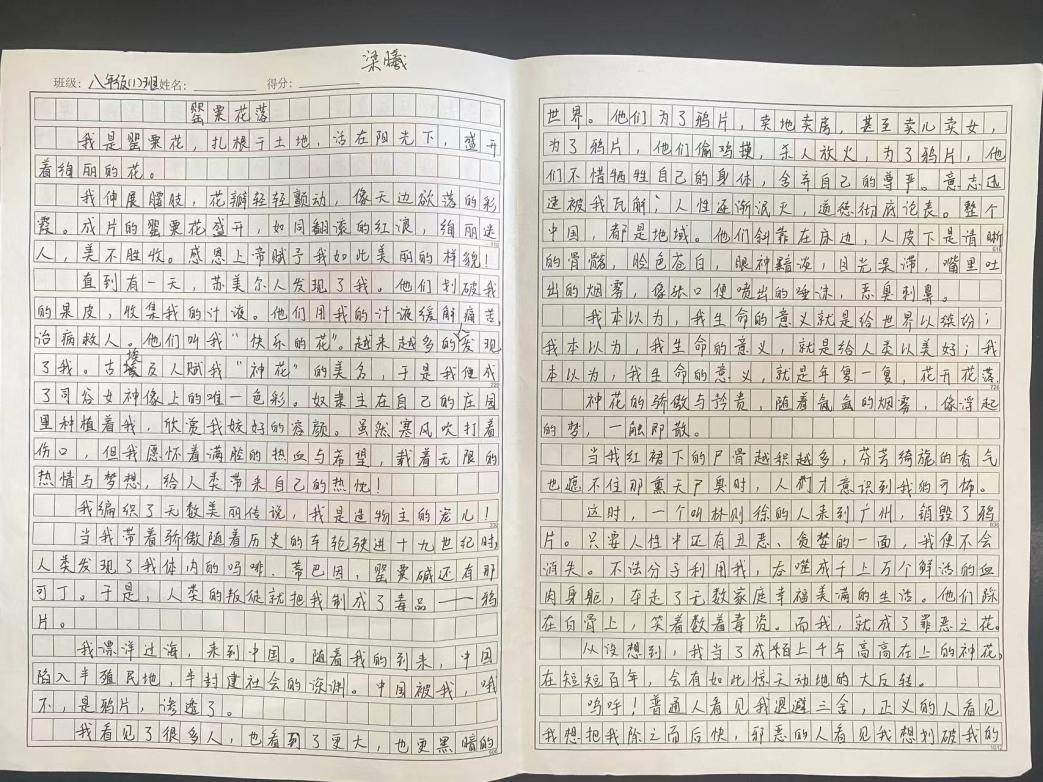 梁曦
班级：八年级(1)班姓名： 得分：
罂粟花落
我是罂粟花，扎根于土地，活在阳光下，盛开
着绚丽的花。
我伸展腰肢，花瓣轻轻颤动，像天边欲落的彩
霞。成片的罂粟花盛开，如同翻滚的红浪，绚丽迷
人，美不胜收。感恩上帝赋予我如此美丽的样貌！
直到有一天，苏美尔人发现了我。他们划破我
的果皮，收集我的汁液。他们用我的汁液缓解痛苦，
治病救人。他们叫我“快乐的花”。越来越多的人发现
了我。古埃及人赋我“神花”的美名，于是我便成
了司谷女神像上的唯一色彩。奴隶主在自己的庄园
里种植着我，欣赏我姣好的容颜。虽然寒风吹打着
伤口，但我愿怀着满腔的热血与希望，载着无限的
热情与梦想，给人类带来自己的热忱！
我编织了无数美丽传说，我是造物主的宠儿！
当我带着骄傲随着历史的车轮驶进十九世纪时，
人类发现了我体内的吗啡、蒂巴因，罂粟碱还有那
可丁。于是，人类的叛徒就把我制成了毒品——鸦
片。
我漂洋过海，来到中国。随着我的到来，中国
陷入半殖民地，半封建社会的深渊。中国被我，哦
不，是鸦片，诱透了。
我看见了很多人，也看到了更大，也更黑暗的
世界。他们为了鸦片，卖地卖房，甚至卖儿卖女，
为了鸦片，他们偷鸡摸，杀人放火，为了鸦片，他
们不惜牺牲自己的身体，舍弃自己的尊严。意志迅
速被我瓦解；人性逐渐泯灭，道德彻底沦丧。整个
中国，都是地域。他们斜靠在床边，人皮下是清晰
的骨骼，脸色苍白，眼神黯淡，目光呆滞，嘴里吐
出的烟雾，像张口便喷出的唾沫，恶臭刺鼻。
我本以为，我生命的意义就是给世界以缤纷；
我本以为，我生命的意义，就是给人类以美好；我
本以为，我生命的意义，就是年复一复，花开花落
神花的骄傲与矜贵，随着氤氲的烟雾，像浮起
的梦，一触即散。
当我红裙下的尸骨越积越多，芬芳绮旎的香气
也遮不住那熏天尸臭时，人们才意识到我的可怖。
这时，一个叫林则徐的人来到广州，销毁了鸦
片。只要人性中还有丑恶、贪婪的一面，我便不会
消失。不法分子利用我，吞噬成千上万个鲜活的血
肉身躯，夺走了无数家庭幸福美满的生活。他们踩
在白骨上，笑着数着毒资。而我，就成了罪恶之花。
从没想到，我当了成栢上千年高高在上的神花，
在短短百年，会有如此惊天动地的大反转。
呜呼！普通人看见我退避三舍，正义的人看见
我想把我除之而后快，邪恶的人看见我想划破我的